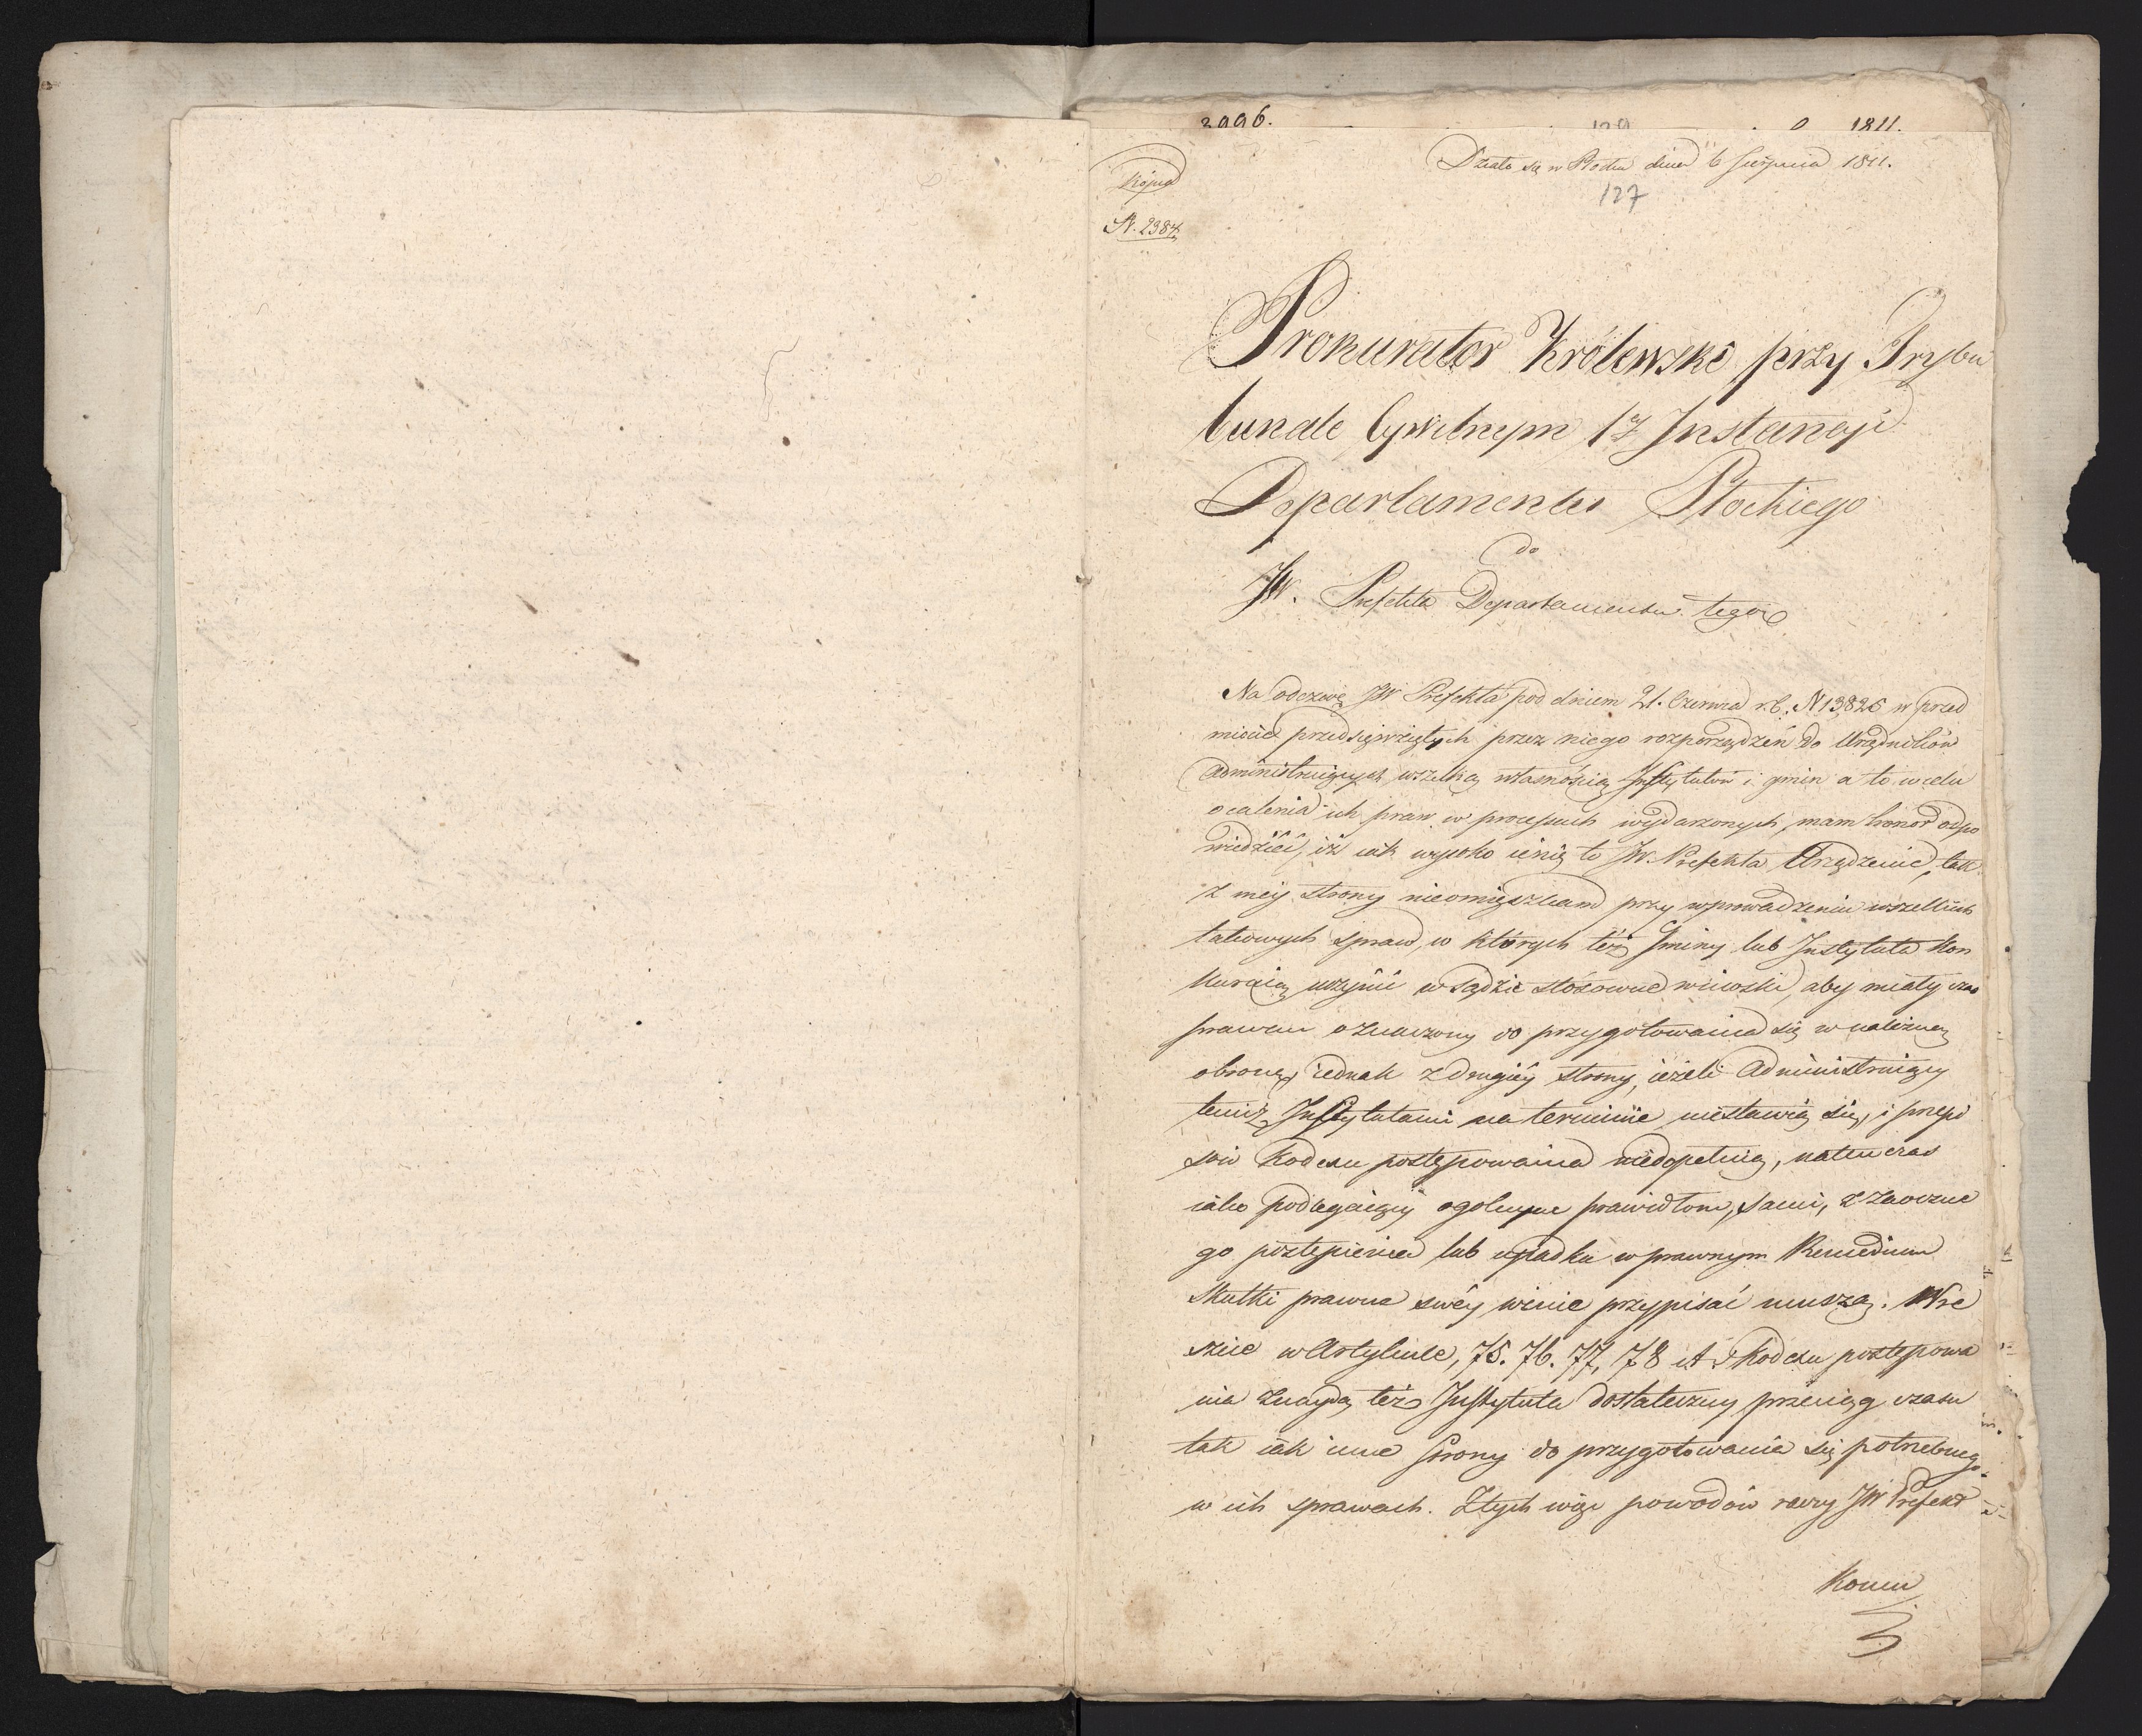 2996.
129
1811.
Kopia
Działo się w Płocku dnia 6 Sierpnia 1811.
127
N. 2384
Prokurator Królewski przy Trybu
bunale Cywilnym 1. Instancyi
Departamentu Płockiego
do
JW. Prefekta Departamentu tegoż
Na odezwę JW Prefekta pod dniem 21. Czerwca r. b. N 13826 w przed
miocie przedsięwziętych przez niego rozporządzeń do Urzędników
administruiących wszelką własnością Instytutów i gmin a to w celu
ocalenia ich praw w processach wydarzonych, mam honor odpo
wiedzieć, iż iak wysoko cenię to JW. Prefekta Urządzenie, tak
z mey strony nieomięszkam przy wprowadzeniu wszelkich
takowych spraw, w których też Gminy lub Instytuta kon
kuruią uczynić w Sądzie stósowne wnioski, aby miały czas
prawem oznaczony do przygotowania się w należną
obronę, iednak z drugiéy strony, ieżeli Administruiący
temiż Instytutami na terminie niestawią się, i przepi
sów Kodexu postępowania niedopełnią, natenczas
iako podlegaiący ogolnym prawidłom, sami, z zaoczne
go postąpienia lub upadku w prawnym Remedium
skutki prawne swéy winie przypisać muszą. Wre
szcie w Artykule, 75. 76. 77, 78 Kodexu postępowa
nia znaydą też Instytuta dostateczny przeciąg czasu
tak iak inne strony do przygotowania się potrzebnego
w ich sprawach. Z tych więc powodów raczy JW Prefekt
Komu